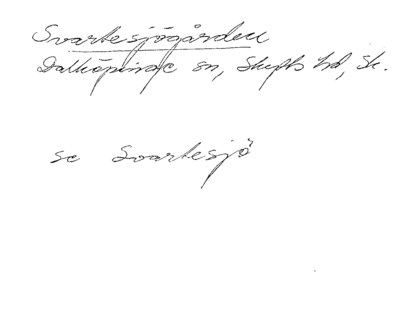 Svartesjögården
Dalköpinge sn, Skytts hd, Sk.
se Svartesjö